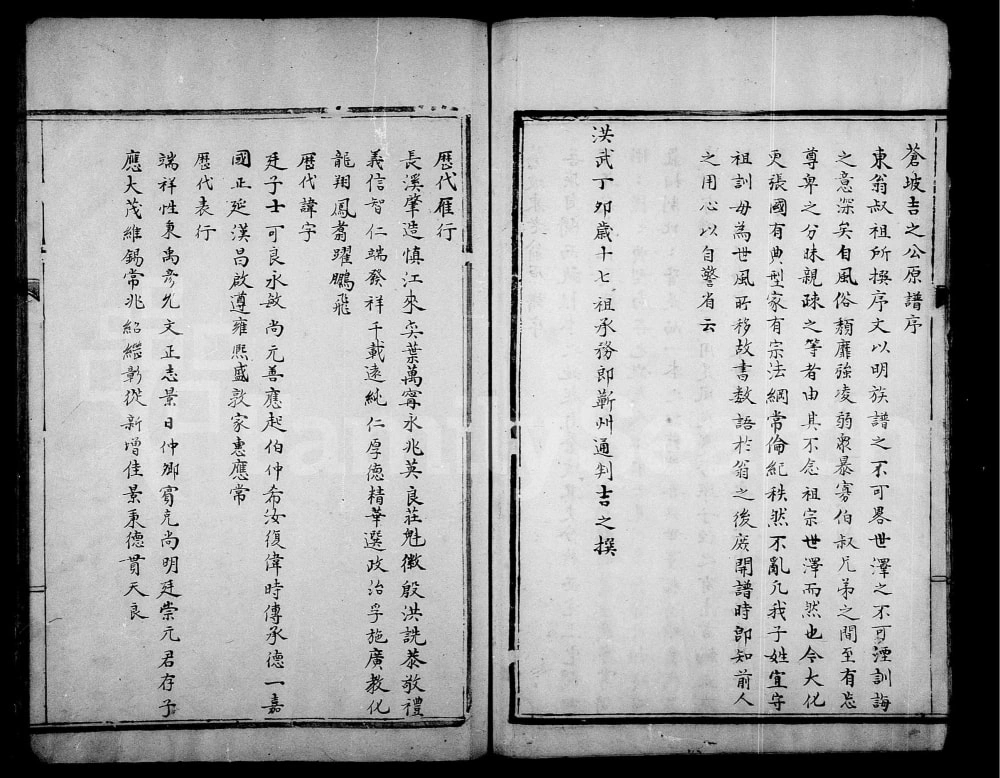 蒼坡吉之公原譜序
東翁叔祖所撰序文以明族譜之不可畧世澤之不可湮訓誨
之意深矣自風俗頽靡強凌弱衆暴寡伯叔兄弟之間至有忘
尊卑之分昧親疎之等者由其不念祖宗世澤而然也今大化
更張國有典型家有宗法綱常倫紀秩然不亂凡我子姓宜守
祖訓毋為世風所移故書数語於翁之後庻開譜時即知前人
之用心以自警省云
洪武丁卯歲十七祖承務郎蘄州通判吉之撰
歷代雁行
長溪肇造慎江來奕葉萬寧永兆英良莊魁徽殷洪詵恭敬禮
義信智仁端發祥千載遠純仁厚德精華選政治孚施廣教化
龍翔鳳翥躍鵬飛
歷代諱字
廷子士可良永敏尚元善應起伯仲希汝復偉時傳承德一嘉
國正延漢昌啟遵雍熙盛敦家惠應常
歷代表行
端祥性東禹彥允文正志景日仲卿賓克尚明廷崇元君存子
應大茂維錫常兆紹繼彰從新增佳景秉德貫天良